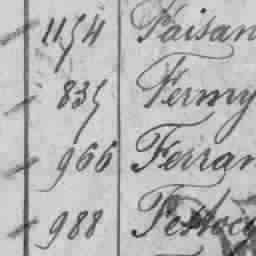 1154 Faisan
835 Fermy
966 Ferran
988